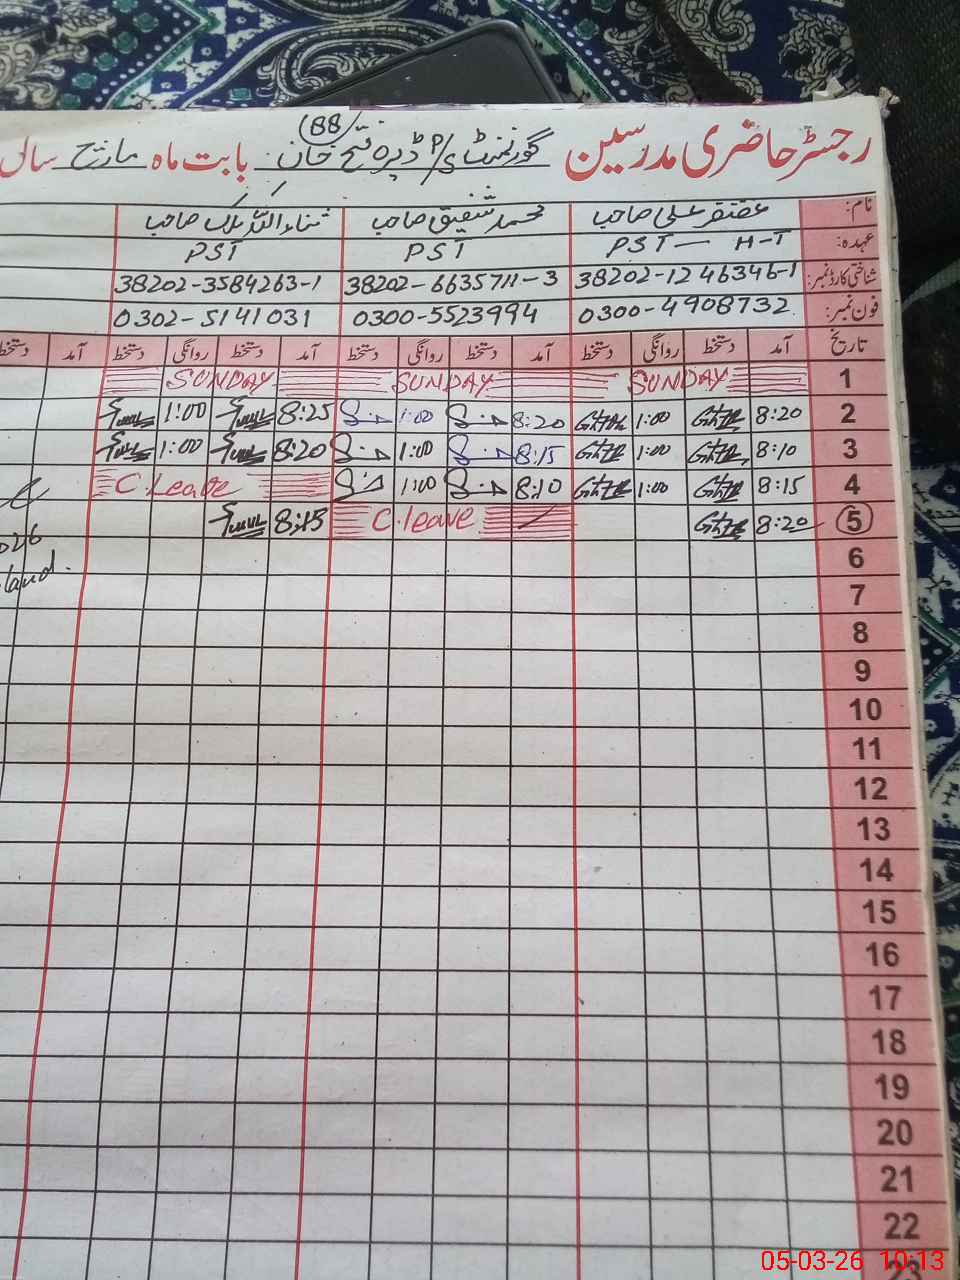 88
رجسٹر حاضری مدرسین گورنمنٹ P/S ڈیرہ فتح خان بابت ماہ مارچ سال
نام: غضنفر علی صاحب محمد شفیق صاحب ثناء اللہ ملک صاحب
عہدہ: PST — H-T PST PST
شناختی کارڈ نمبر: 38202-1246346-1 38202-6635711-3 38202-3584263-1
فون نمبر: 0300-4908732 0300-5523994 0302-5141031
تاریخ آمد دستخط روانگی دستخط آمد دستخط روانگی دستخط آمد دستخط روانگی دستخط آمد دستخط
1 SUNDAY SUNDAY SUNDAY
2 8:20 1:00 8:20 1:00 8:25 1:00
3 8:10 1:00 8:15 1:00 8:20 1:00
4 8:15 1:00 8:10 1:00 C.Leave
5 8:20 C.leave 8:15
026
6
7
8
9
10
11
12
13
14
15
16
17
18
19
20
21
22
23
05-03-26 10:13